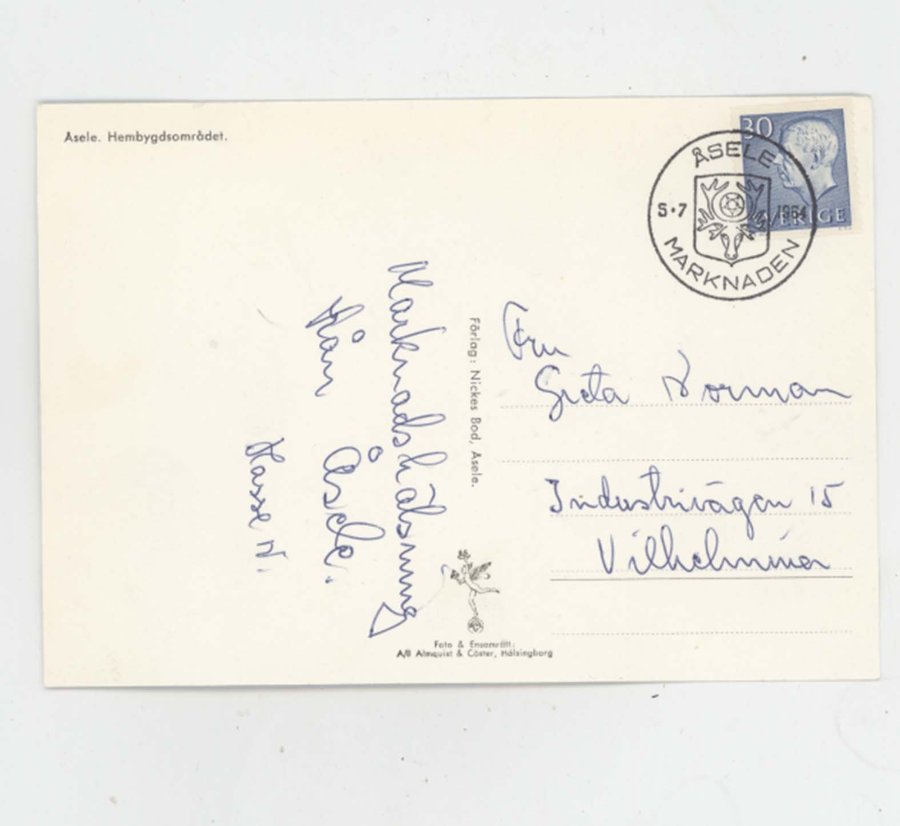 Åsele. Hembygdsområdet.
30
SVERIGE
ÅSELE
5·7 1964
MARKNADEN
Marknadshälsning
från Åsele.
Hasse N.
Förlag: Nickes Bod, Åsele.
Fru
Greta Norman
Industrivägen 15
Vilhelmina
Foto & Ensamrätt:
A/B Almquist & Cöster, Hälsingborg